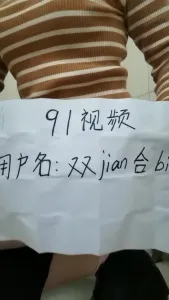 91视频
用户名:双jian合bi